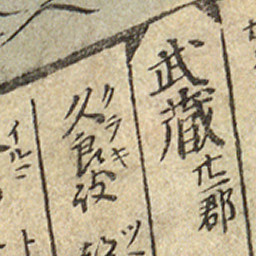 武蔵廿一郡
クラキ
久良岐
ツ
イル